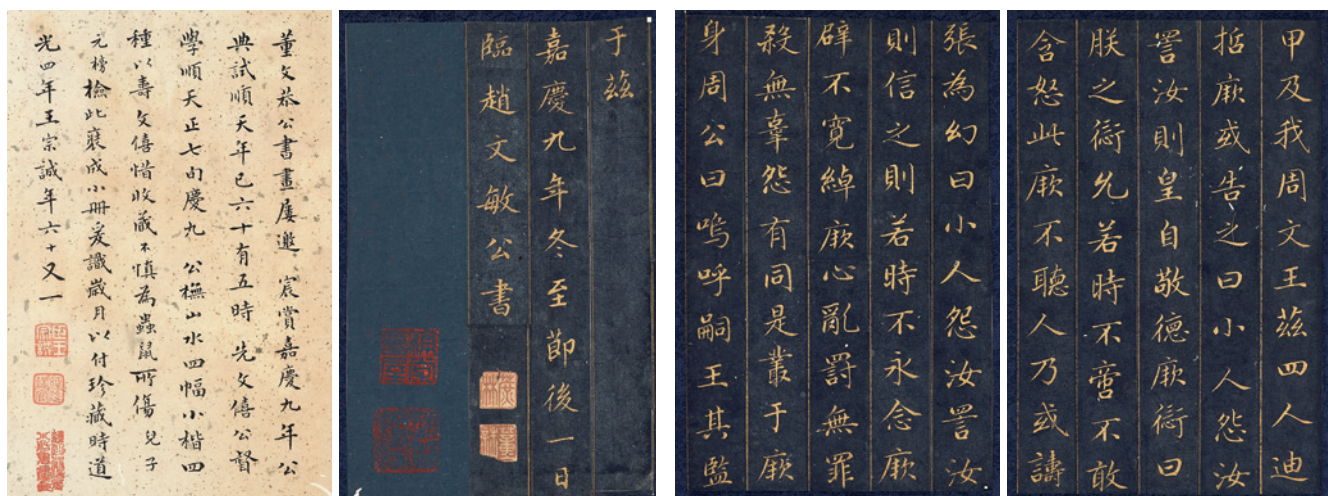 甲及我周文王茲四人迪
哲厥或告之曰小人怨汝
詈汝則皇自敬德厥愆曰
朕之愆允若時不啻不敢
含怒此厥不聽人乃或譸
張為幻曰小人怨汝詈汝
則信之則若時不永念厥
辟不寬綽厥心亂罰無罪
殺無辜怨有同是叢于厥
身周公曰嗚呼嗣王其監
于茲
嘉慶九年冬至節後一日
臨趙文敏公書
董文恭公書畫屢邀 宸賞嘉慶九年公
典試順天年已六十有五時 先文僖公督
學順天正七旬慶九 公橅山水四幅小楷四
種以壽文僖惜收藏不慎為蟲鼠所傷 兒子
元榜檢此裝成小冊爰識歲月以付珍藏時道
光四年王宗誠年六十又一